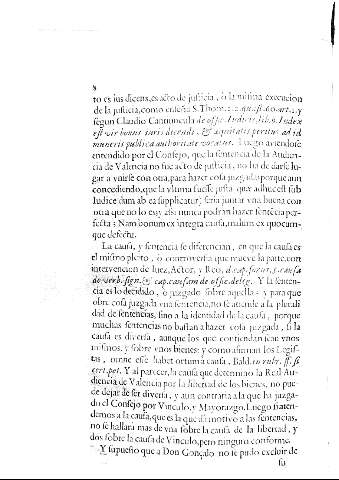 8
to es ius dicens, es acto de justicia, ò la misma execucion
de la justicia, como enseña S. Thom. 2. 2. quæst. 60. art. 1. y
segun Claudio Cantuncula de offic. Iudicis, lib. 9. Iudex
est vir bonus iuris dicendi, & æquitatis peritus ad id
muneris publica authoritate vocatus. Luego aviendose
entendido por el Consejo, que la sentencia de la Audien
cia de Valencia no fue acto de justicia, no ha de darse lu-
gar a vnirse con otra, para hazer cosa juzgada, porque aun
concediendo, que la vltima fuesse justa quæ adhuc est sub
Iudice dum ab ea supplicatur; seria juntar vna buena con
otra que no lo es, y assi nunca podran hazer sentencia per-
fecta: Nam bonum ex integra causa, malum ex quocum-
que defectu.
La causa, y sentencia se diferencian, en que la causa es
el mismo pleito, ò controversia que mueve la parte, con
intervencion de Iuez, Actor, y Reo,
de verb. sign. & cap. causam de offic. deleg. Y la senten-
cia es lo decidido, ò juzgado sobre aquella; y para que
obre cosa juzgada vna sentencia, no se atiende a la plurali
dad de sentencias, sino a la identidad de la causa, porque
muchas sentencias no bastan a hazer cosa juzgada, si la
causa es diversa, aunque los que contiendan sean vnos
mismos, y sobre vnos bienes; y como afirman los Legis-
tas, omne esse habet ortum à causa, Bald. in rubr. ff. si
cert. pet. Y al parecer, la causa que determinò la Real Au-
diencia de Valencia por la libertad de los bienes, no pue-
de dejar de ser diversa, y aun contraria a la que ha juzga-
do el Consejo por Vinculo, y Mayorazgo. Luego si aten-
demos a la causa, que es la que dà motivo a las sentencias,
no se hallarà mas de vna sobre la causa de la libertad, y
dos sobre la causa de Vinculo, pero ninguno conforme.
Y supuesto que a Don Gonçalo no se pudo excluir de
su